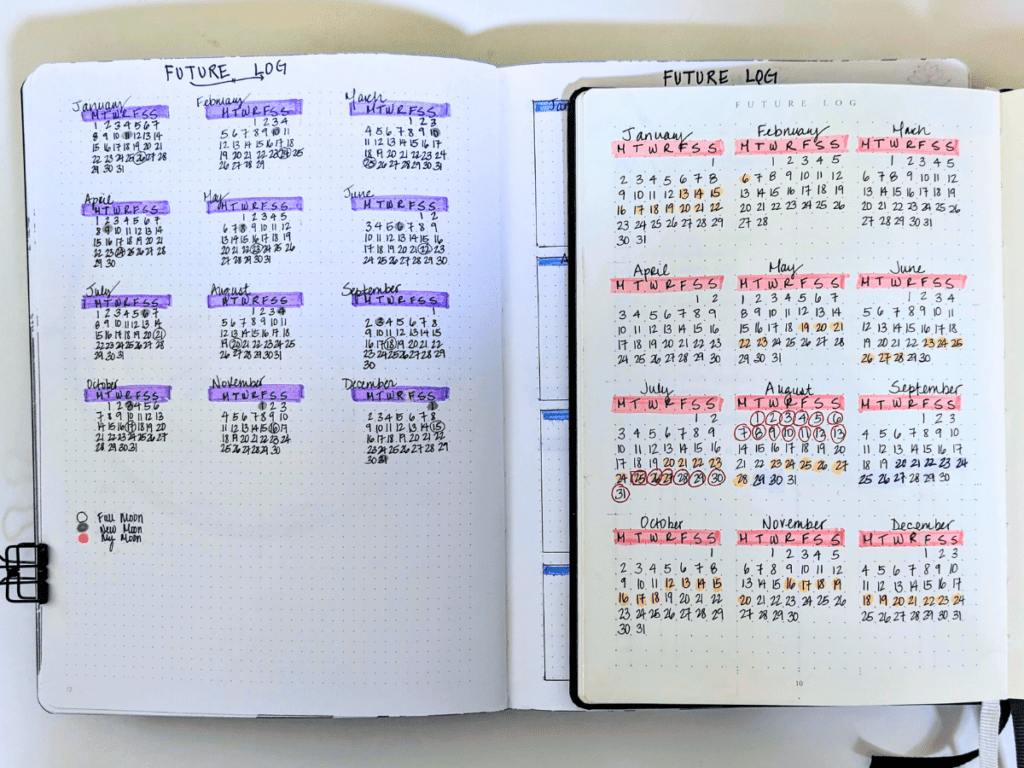 FUTURE LOG
January
M T W R F S S
1 2 3 4 5 6 7
8 9 10 11 12 13 14
15 16 17 18 19 20 21
22 23 24 25 26 27 28
29 30 31
February
M T W R F S S
1 2 3 4
5 6 7 8 9 10 11
12 13 14 15 16 17 18
19 20 21 22 23 24 25
26 27 28 29
March
M T W R F S S
1 2 3
4 5 6 7 8 9 10
11 12 13 14 15 16 17
18 19 20 21 22 23 24
25 26 27 28 29 30 31
April
M T W R F S S
1 2 3 4 5 6 7
8 9 10 11 12 13 14
15 16 17 18 19 20 21
22 23 24 25 26 27 28
29 30
May
M T W R F S S
1 2 3 4 5
6 7 8 9 10 11 12
13 14 15 16 17 18 19
20 21 22 23 24 25 26
27 28 29 30 31
June
M T W R F S S
1 2
3 4 5 6 7 8 9
10 11 12 13 14 15 16
17 18 19 20 21 22 23
24 25 26 27 28 29 30
July
M T W R F S S
1 2 3 4 5 6 7
8 9 10 11 12 13 14
15 16 17 18 19 20 21
22 23 24 25 26 27 28
29 30 31
August
M T W R F S S
1 2 3 4
5 6 7 8 9 10 11
12 13 14 15 16 17 18
19 20 21 22 23 24 25
26 27 28 29 30 31
September
M T W R F S S
1
2 3 4 5 6 7 8
9 10 11 12 13 14 15
16 17 18 19 20 21 22
23 24 25 26 27 28 29
30
October
M T W R F S S
1 2 3 4 5 6
7 8 9 10 11 12 13
14 15 16 17 18 19 20
21 22 23 24 25 26 27
28 29 30 31
November
M T W R F S S
1 2 3
4 5 6 7 8 9 10
11 12 13 14 15 16 17
18 19 20 21 22 23 24
25 26 27 28 29 30 31
December
M T W R F S S
1
2 3 4 5 6 7 8
9 10 11 12 13 14 15
16 17 18 19 20 21 22
23 24 25 26 27 28 29
30 31
Full Moon
New Moon
My Moon
12
FUTURE LOG
FUTURE LOG
January
M T W R F S S
1
2 3 4 5 6 7 8
9 10 11 12 13 14 15
16 17 18 19 20 21 22
23 24 25 26 27 28 29
30 31
February
M T W R F S S
1 2 3 4 5
6 7 8 9 10 11 12
13 14 15 16 17 18 19
20 21 22 23 24 25 26
27 28
March
M T W R F S S
1 2 3 4 5
6 7 8 9 10 11 12
13 14 15 16 17 18 19
20 21 22 23 24 25 26
27 28 29 30 31
April
M T W R F S S
1 2
3 4 5 6 7 8 9
10 11 12 13 14 15 16
17 18 19 20 21 22 23
24 25 26 27 28 29 30
May
M T W R F S S
1 2 3 4 5 6 7
8 9 10 11 12 13 14
15 16 17 18 19 20 21
22 23 24 25 26 27 28
29 30 31
June
M T W R F S S
1 2 3 4
5 6 7 8 9 10 11
12 13 14 15 16 17 18
19 20 21 22 23 24 25
26 27 28 29 30
July
M T W R F S S
1 2
3 4 5 6 7 8 9
10 11 12 13 14 15 16
17 18 19 20 21 22 23
24 25 26 27 28 29 30
31
August
M T W R F S S
1 2 3 4 5 6
7 8 9 10 11 12 13
14 15 16 17 18 19 20
21 22 23 24 25 26 27
28 29 30 31
September
M T W R F S S
1 2 3
4 5 6 7 8 9 10
11 12 13 14 15 16 17
18 19 20 21 22 23 24
25 26 27 28 29 30
October
M T W R F S S
1
2 3 4 5 6 7 8
9 10 11 12 13 14 15
16 17 18 19 20 21 22
23 24 25 26 27 28 29
30 31
November
M T W R F S S
1 2 3 4 5
6 7 8 9 10 11 12
13 14 15 16 17 18 19
20 21 22 23 24 25 26
27 28 29 30
December
M T W R F S S
1 2 3
4 5 6 7 8 9 10
11 12 13 14 15 16 17
18 19 20 21 22 23 24
25 26 27 28 29 30 31
10